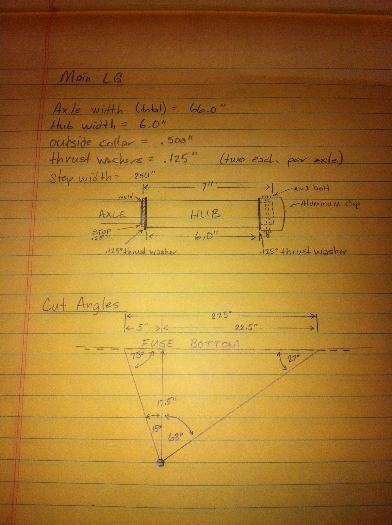 Main LG
Axle width (total) = 66.0"
Hub width = 6.0"
outside collar = .500"
thrust washers = .125" (two each. per axle)
Stop width = .250"
7"
axle bolt
Aluminum Cap
AXLE
HUB
STOP
.25"
6.0"
.125" thrust washer
.125" thrust washer
Cut Angles
27.5"
5"
22.5"
FUSE BOTTOM
75°
27°
17.5"
15°
63°